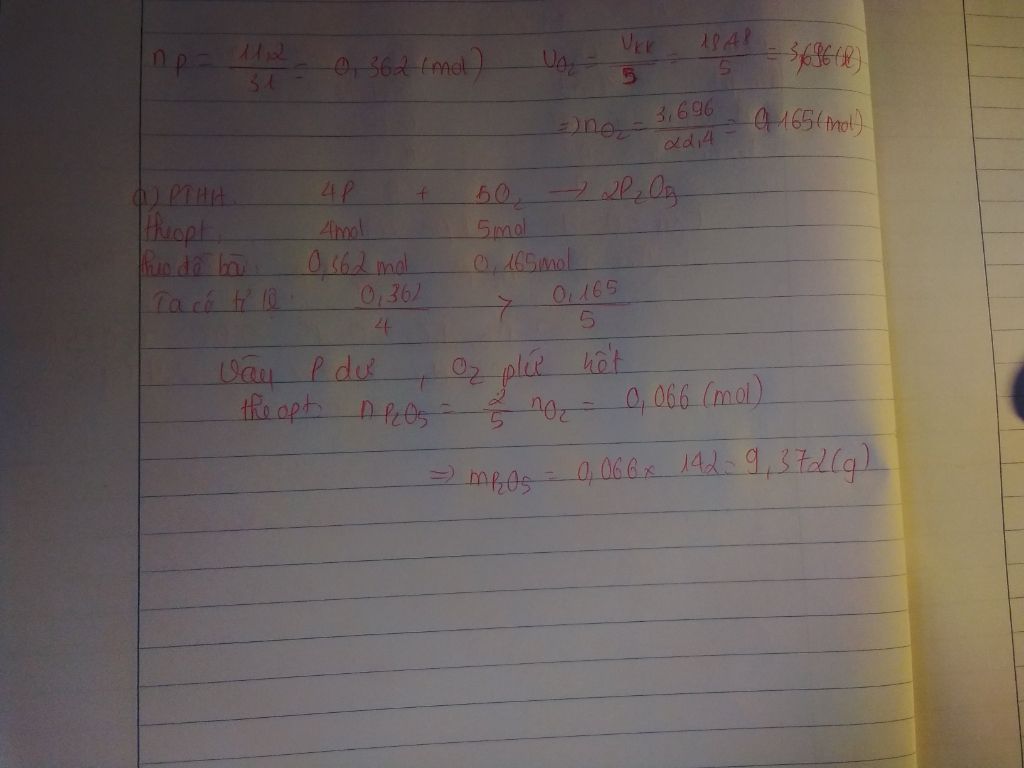 nP = 11,2/31 = 0,362 (mol) VO2 = VKK/5 = 18,48/5 = 3,696 (l)
=> nO2 = 3,696/22,4 = 0,165 (mol)
a) PTHH: 4P + 5O2 → 2P2O5
theopt: 4mol 5mol
theo đề bài: 0,362 mol 0,165mol
Ta có tỉ lệ: 0,362/4 > 0,165/5
Vậy P dư, O2 pứ hết
theopt: nP2O5 = 2/5 nO2 = 0,066 (mol)
=> mP2O5 = 0,066 x 142 = 9,372 (g)